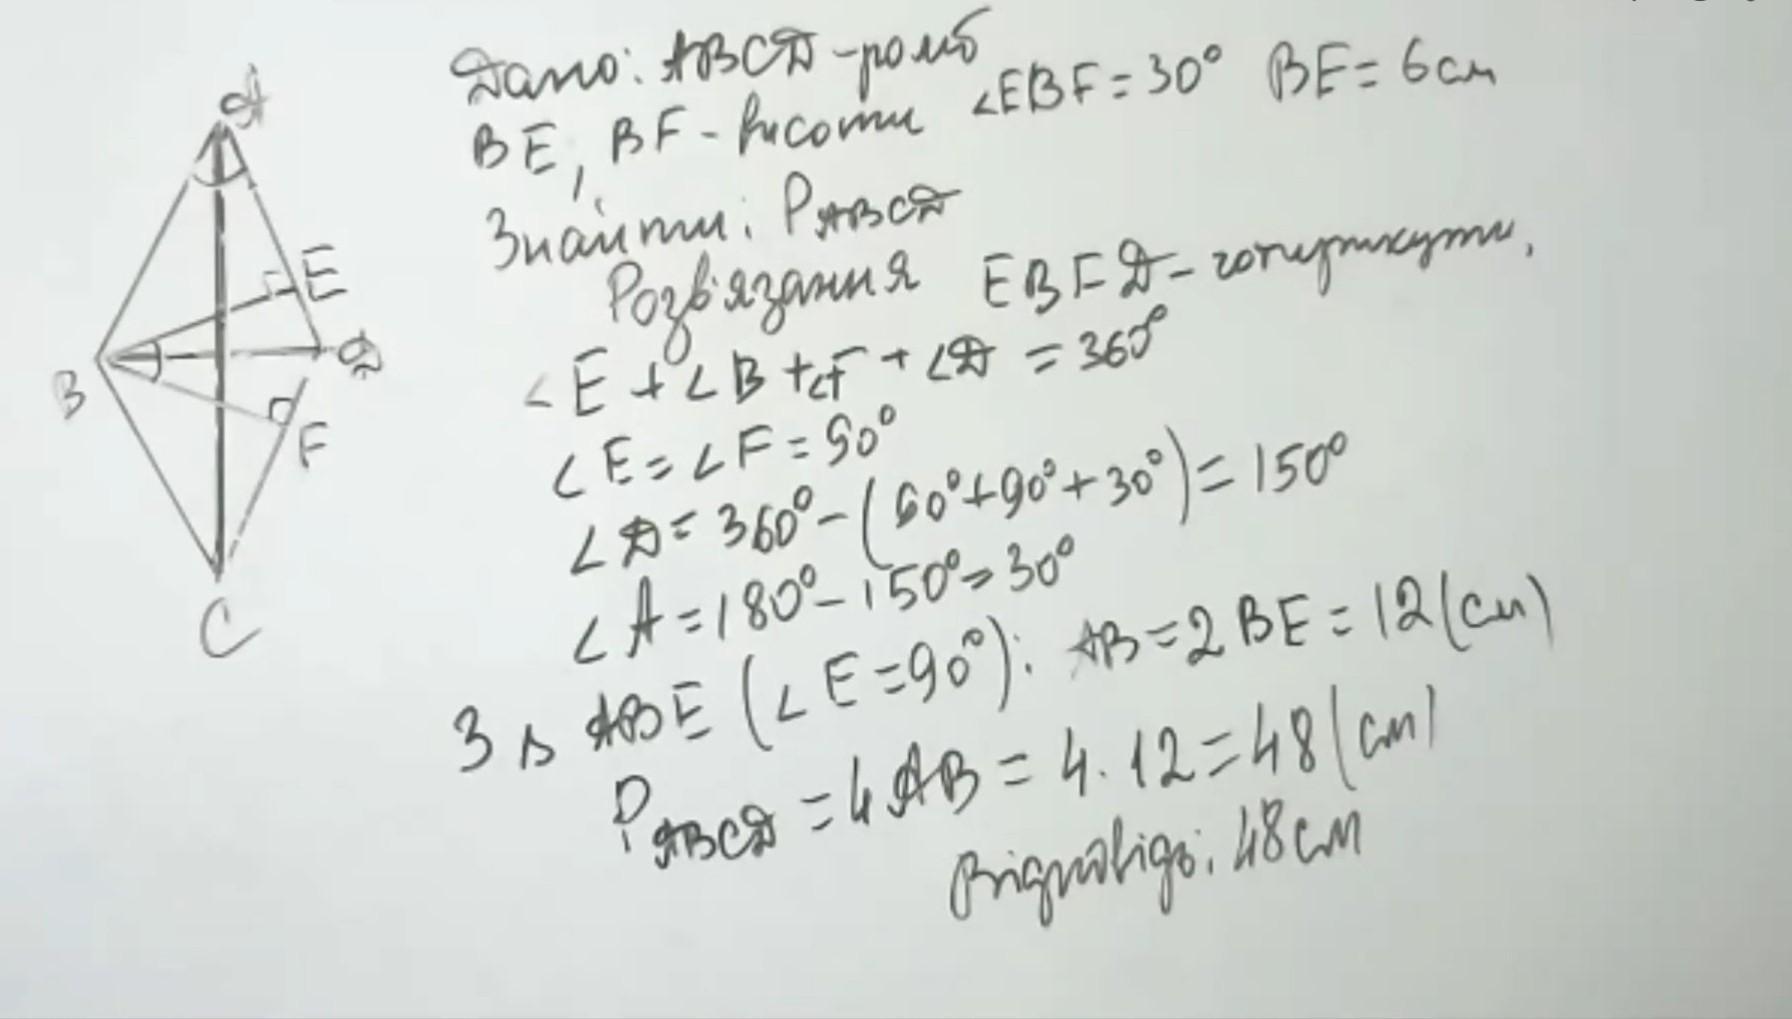 Дано: ABCD - ромб
BE, BF - висоти ∠EBF = 30° BE = 6 см
Знайти: P ABCD
Розв'язання EBFD - чотирикутник,
∠E + ∠B + ∠F + ∠D = 360°
∠E = ∠F = 90°
∠D = 360° - (60° + 90° + 30°) = 150°
∠A = 180° - 150° = 30°
З △ ABE (∠E = 90°): AB = 2 BE = 12 (см)
P ABCD = 4 AB = 4 · 12 = 48 (см)
Відповідь: 48 см
A
E
B
D
F
C